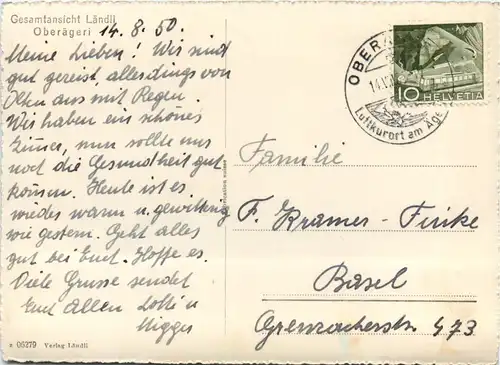 Gesamtansicht Ländli
Oberägeri 14.8.50.
Meine Lieben! Wir sind
gut gereist, allerdings von
Olten aus mit Regen.
Wir haben ein schönes
Zimer, nun sollte uns
noch die Gesundheit gut
komen. Heute ist es
wieder warm u. gewittrig
wie gestern. Geht alles
gut bei Euch. Hoffe es.
Viele Grüsse sendet
Euch allen Lotti u
Migger
OBER
14.V
Luftkurort am Äge
10 HELVETIA
Familie
F. Kramer-Finke
Basel
Grenzacherstr. 473
06279 Verlag Ländli